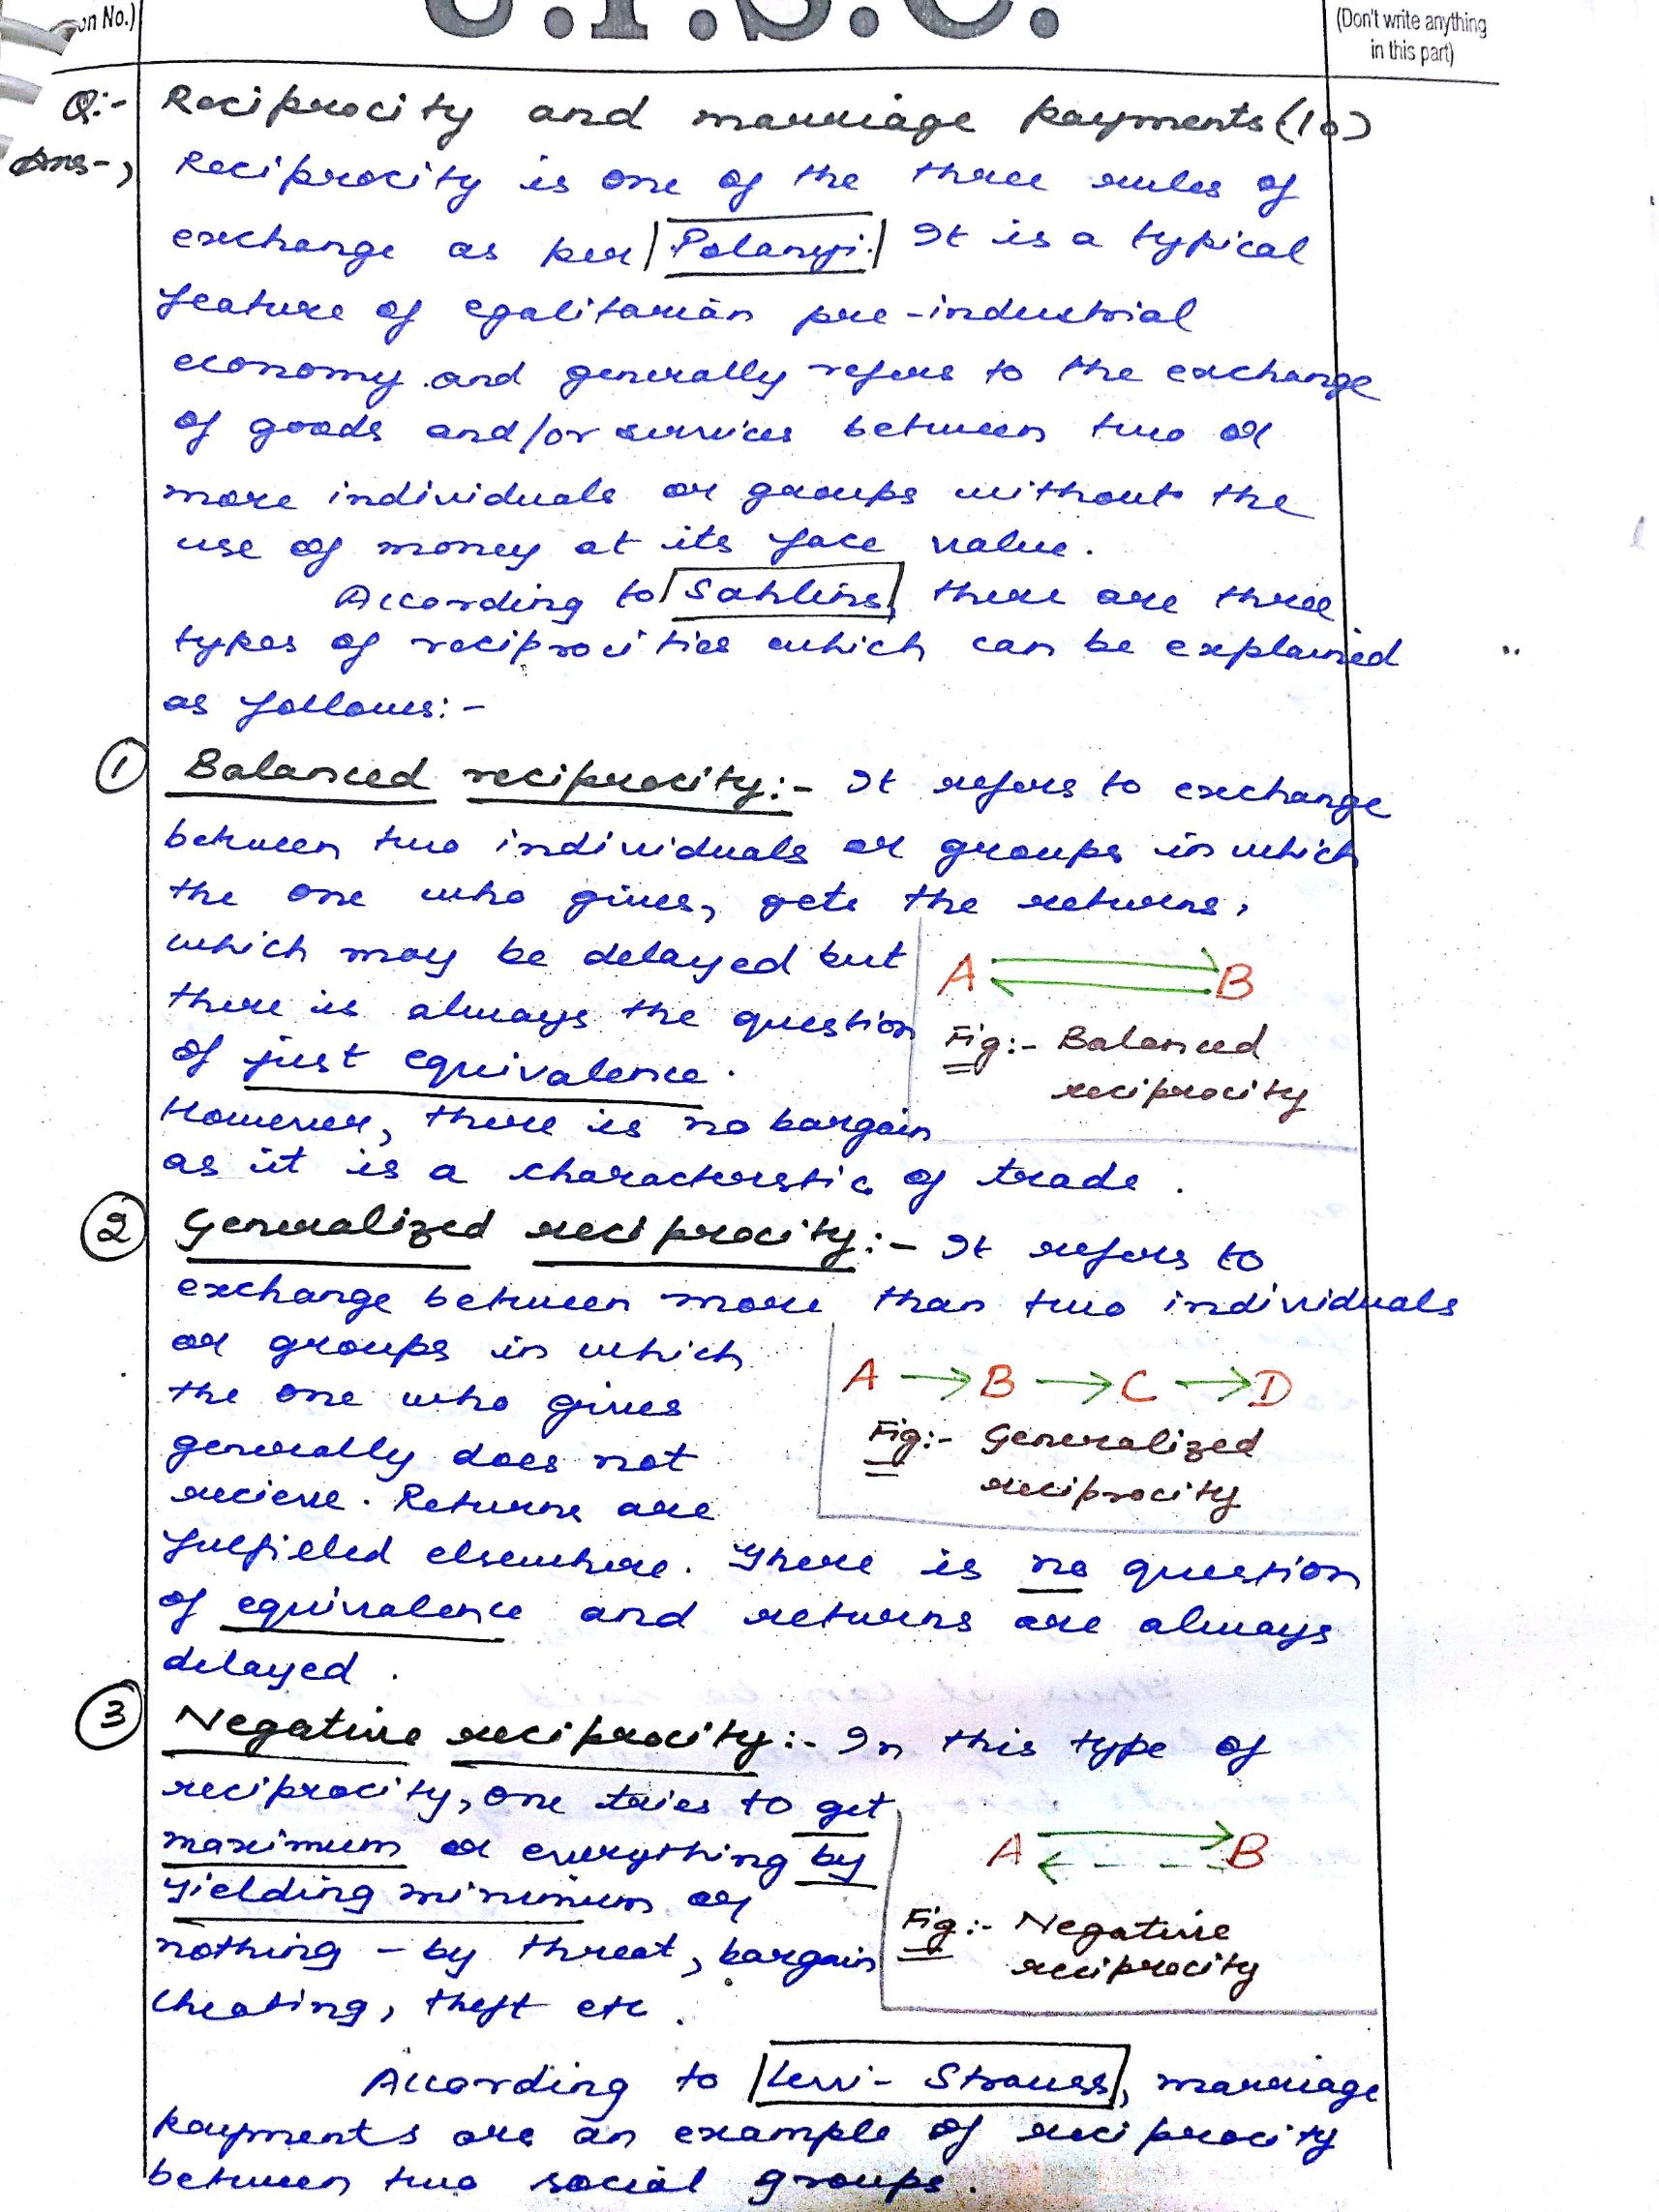 on No.)
U.P.S.C.
(Don't write anything
in this part)
Q:- Reciprocity and marriage payments (10)
Ans-, Reciprocity is one of the three rules of
exchange as per Polanyi. It is a typical
feature of egalitarian pre-industrial
economy and generally refers to the exchange
of goods and/or services between two or
more individuals or groups without the
use of money at its face value.
According to Sahlins, there are three
types of reciprocities which can be explained
as follows:-
1 Balanced reciprocity:- It refers to exchange
between two individuals or groups in which
the one who gives, gets the returns,
which may be delayed but
there is always the question
of just equivalence.
However, there is no bargain
as it is a characterstic of trade.
A B
Fig:- Balanced
reciprocity
2 Generalized reciprocity:- It refers to
exchange between more than two individuals
or groups in which
the one who gives
generally does not
recieve. Returns are
fulfilled elsewhere. There is no question
of equivalence and returns are always
delayed.
A → B → C → D
Fig:- Generalized
reciprocity
3 Negative reciprocity:- In this type of
reciprocity, one tries to get
maximum or everything by
yielding minimum or
nothing - by threat, bargain
cheating, theft etc.
A B
Fig:- Negative
reciprocity
According to Levi-Strauss, marriage
payments are an example of reciprocity
between two social groups.